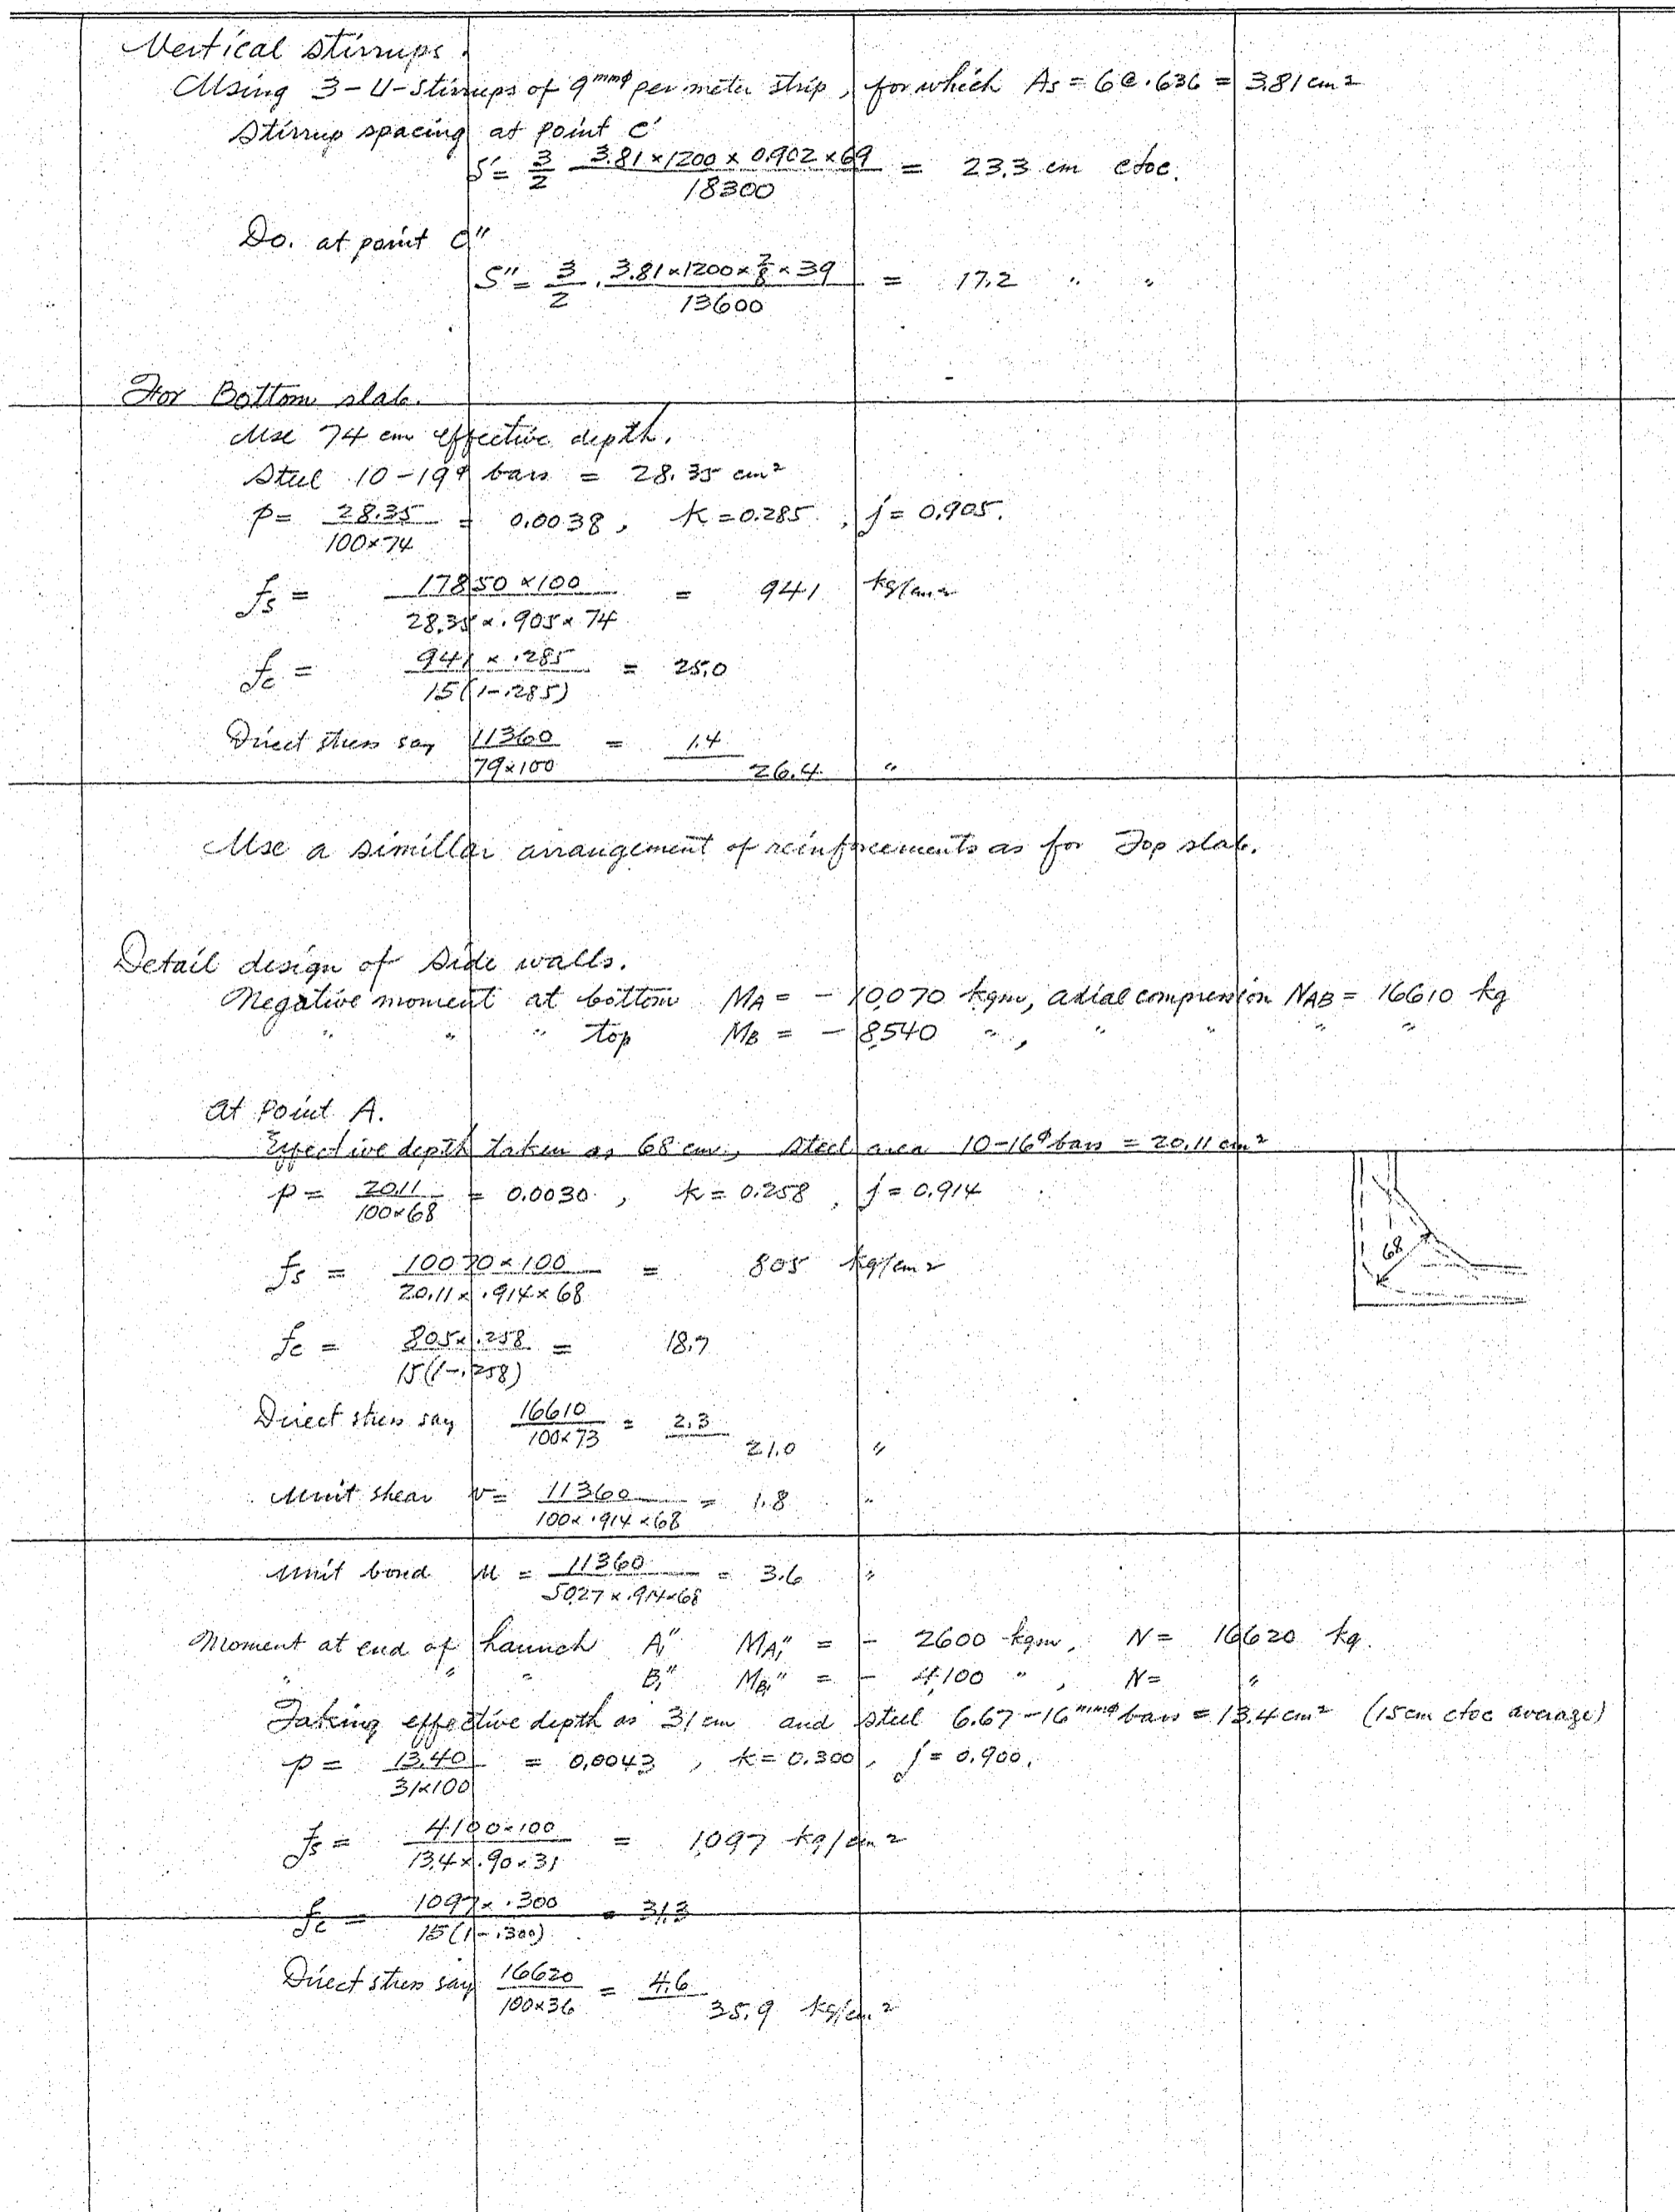 Vertical stirrups.
Using 3-U-stirrups of 9mmφ per meter strip, for which As = 6@.636 = 3.81 cm²
Stirrup spacing at point C'
S' = 3/2 3.81×1200×0.902×69/18300 = 23.3 cm ctoc.
Do. at point C"
S" = 3/2 . 3.81×1200×7/8×39/13600 = 17.2 " "
For Bottom slab.
Use 74 cm effective depth.
Steel 10-19φ bars = 28.35 cm²
p = 28.35/100×74 = 0.0038, k = 0.285, j = 0.905.
fs = 17850×100/28.35×.905×74 = 941 kg/cm²
fc = 941×.285/15(1-.285) = 25.0
Direct stress say 11360/79×100 = 1.4
26.4 "
Use a simillar arrangement of reinforcements as for Top slab.
Detail design of side walls.
Negative moment at bottom MA = - 10070 kgm, axial compression NAB = 16610 kg
" " " top MB = - 8,540 ", " " " "
At Point A.
Effective depth taken as 68 cm, steel area 10-16φ bars = 20.11 cm²
p = 20.11/100×68 = 0.0030, k = 0.258, j = 0.914
68
fs = 10070×100/20.11×.914×68 = 805 kg/cm²
fc = 805×.258/15(1-.258) = 18.7
Direct stress say 16610/100×73 = 2.3
21.0 "
Unit shear v = 11360/100×.914×68 = 1.8 "
Unit bond u = 11360/50.27×.914×68 = 3.6 "
Moment at end of haunch A₁" MA₁" = - 2600 kgm, N = 16620 kg.
" " " B₁" MB₁" = - 4,100 ", N = "
Taking effective depth as 31 cm and steel 6.67-16mmφ bars = 13.4 cm² (15cm ctoc average)
p = 13.40/31×100 = 0.0043, k = 0.300, j = 0.900.
fs = 4100×100/13.4×.90×31 = 1,097 kg/cm²
fc = 1097×.300/15(1-.300) = 31.3
Direct stress say 16620/100×36 = 4.6
35.9 kg/cm²